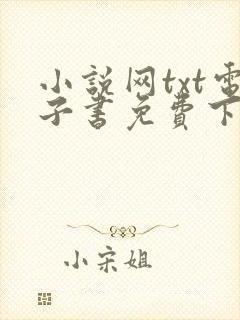 小説网txt電
子書免費下
小宋姐